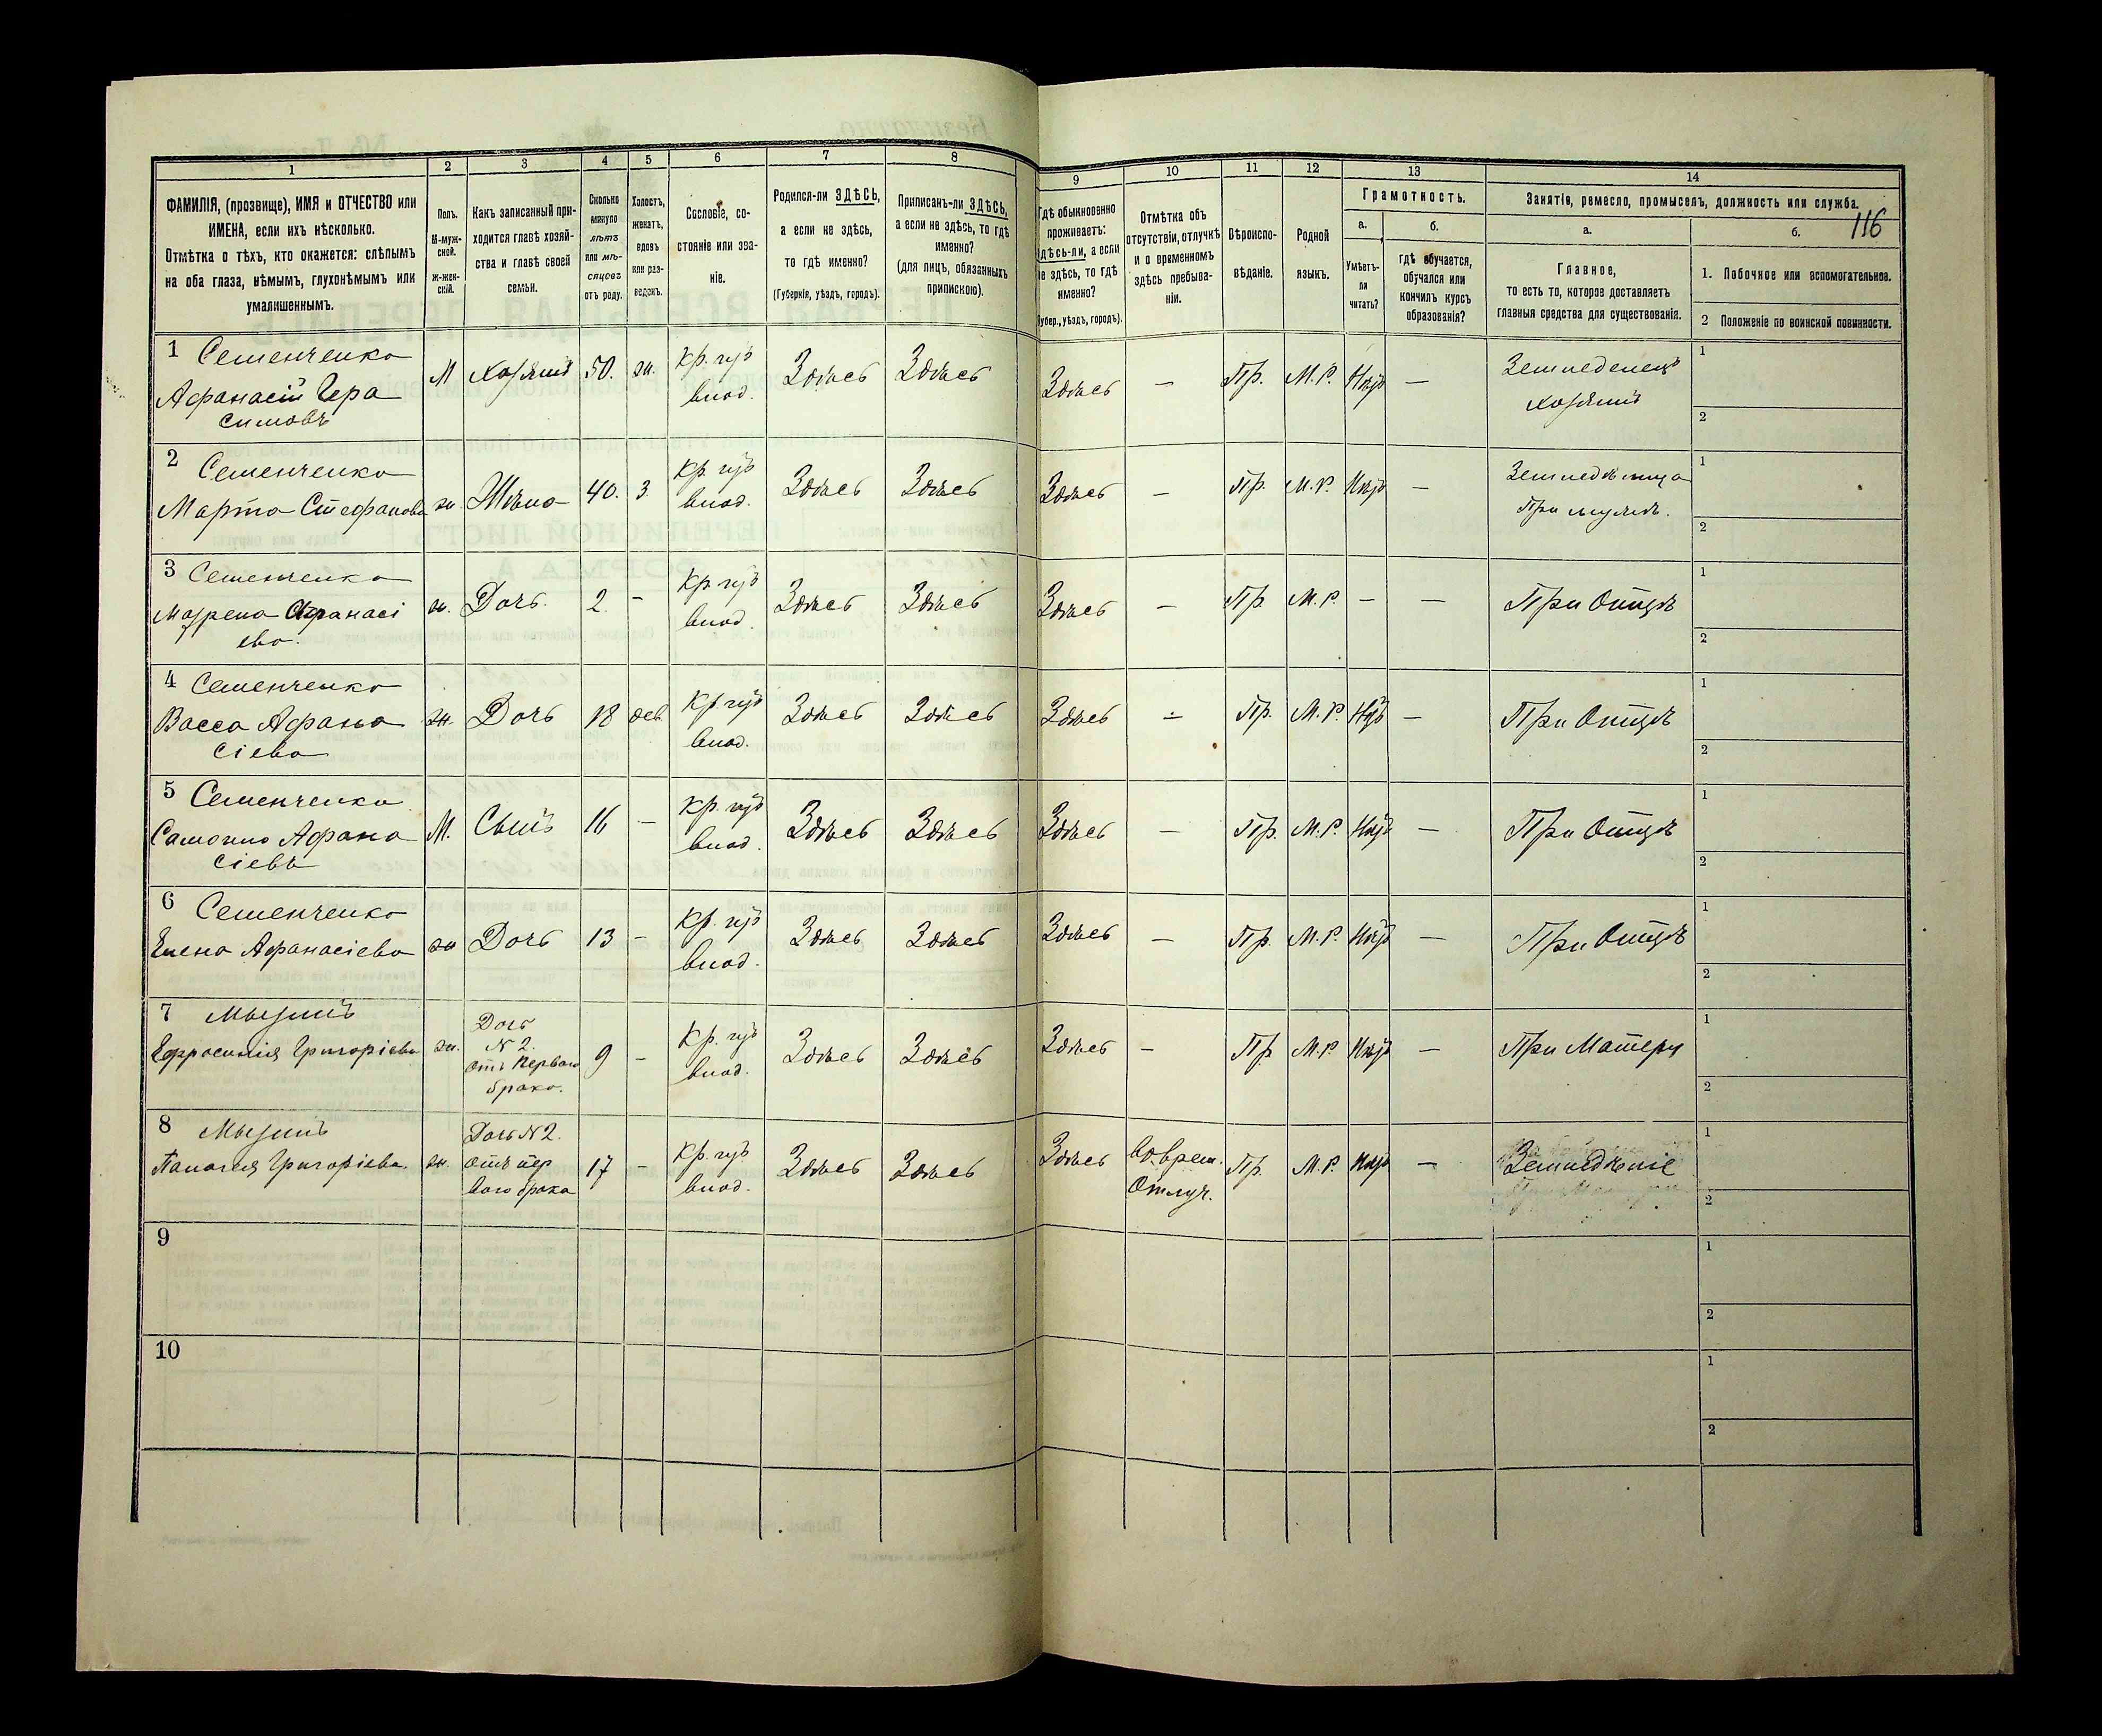 116
1 2 3 4 5 6 7 8 9 10 11 12 13 14
ФАМИЛІЯ, (прозвище), ИМЯ и ОТЧЕСТВО или
ИМЕНА, если ихъ нѣсколько.
Отмѣтка о тѣхъ, кто окажется: слѣпымъ
на оба глаза, нѣмымъ, глухонѣмымъ или
умалишеннымъ.
Полъ.
М-муж-
ской.
ж-жен-
скій.
Какъ записанный при-
ходится главѣ хозяй-
ства и главѣ своей
семьи.
Сколько
минуло
лѣтъ
или мѣ-
сяцевъ
отъ роду.
Холостъ,
женатъ,
вдовъ
или раз-
веденъ.
Сословіе, со-
стояніе или зва-
ніе.
Родился-ли ЗДѢСЬ,
а если не здѣсь,
то гдѣ именно?
(Губернія, уѣздъ, городъ).
Приписанъ-ли ЗДѢСЬ,
а если не здѣсь, то гдѣ
именно?
(для лицъ, обязанныхъ
припискою).
Гдѣ обыкновенно
проживаетъ:
здѣсь-ли, а если
не здѣсь, то гдѣ
именно?
(Губер., уѣздъ, городъ).
Отмѣтка объ
отсутствіи, отлучкѣ
и о временномъ
здѣсь пребыва-
ніи.
Вѣроиспо-
вѣданіе.
Родной
языкъ.
Грамотность.
а.
Умѣетъ-
ли
читать?
б.
гдѣ обучается,
обучался или
кончилъ курсъ
образованія?
Занятіе, ремесло, промыселъ, должность или служба.
а.
Главное,
то есть то, которое доставляетъ
главныя средства для существованія.
б.
1. Побочное или вспомогательное.
2 Положеніе по воинской повинности.
1 Семенченко
Афанасій Гера
симовъ
М Хозяинъ 50. ж. Кр. изъ
влад.
Здѣсь Здѣсь Здѣсь — Пр. М.Р. Нѣтъ —
Земледелецъ
хозяинъ
1
2
2 Семенченко
Марта Стефанова ж. Жена 40. з. Кр. изъ
влад.
Здѣсь Здѣсь Здѣсь — Пр. М.Р. Нѣтъ —
При мужѣ.
1
2
3 Семенченко
Мазрена Афанасі
ева.
ж. Дочь. 2. — Кр. изъ
влад.
Здѣсь Здѣсь Здѣсь — Пр. М.Р. — — При Отцѣ
1
2
4 Семенченко
Васса Афана
сіева
ж. Дочь 18 дев. Кр. изъ
влад.
Здѣсь Здѣсь Здѣсь — Пр. М.Р. Нѣтъ — При Отцѣ
1
2
5 Семенченко
Самоило Афана
сіевъ
М. Сынъ 16 — Кр. изъ
влад.
Здѣсь Здѣсь Здѣсь — Пр. М.Р. Нѣтъ — При Отцѣ
1
2
6 Семенченко
Елена Афанасіева ж Дочь 13 — Кр. изъ
влад.
Здѣсь Здѣсь Здѣсь — Пр. М.Р. Нѣтъ — При Отцѣ
1
2
7
Ефросинія Григоріева ж.
Дочь
N 2.
отъ Перваго
брака.
9 — Кр. изъ
влад.
Здѣсь Здѣсь Здѣсь — Пр. М.Р. Нѣтъ — При Матери
1
2
8
Григоріева. ж.
Дочь N 2.
отъ пер
ваго брака
17 — Кр. изъ
влад.
Здѣсь Здѣсь Здѣсь Во врем.
Отлуч.
Пр. М.Р. Нѣтъ — Земледѣліе
1
2
9
1
2
10
1
2